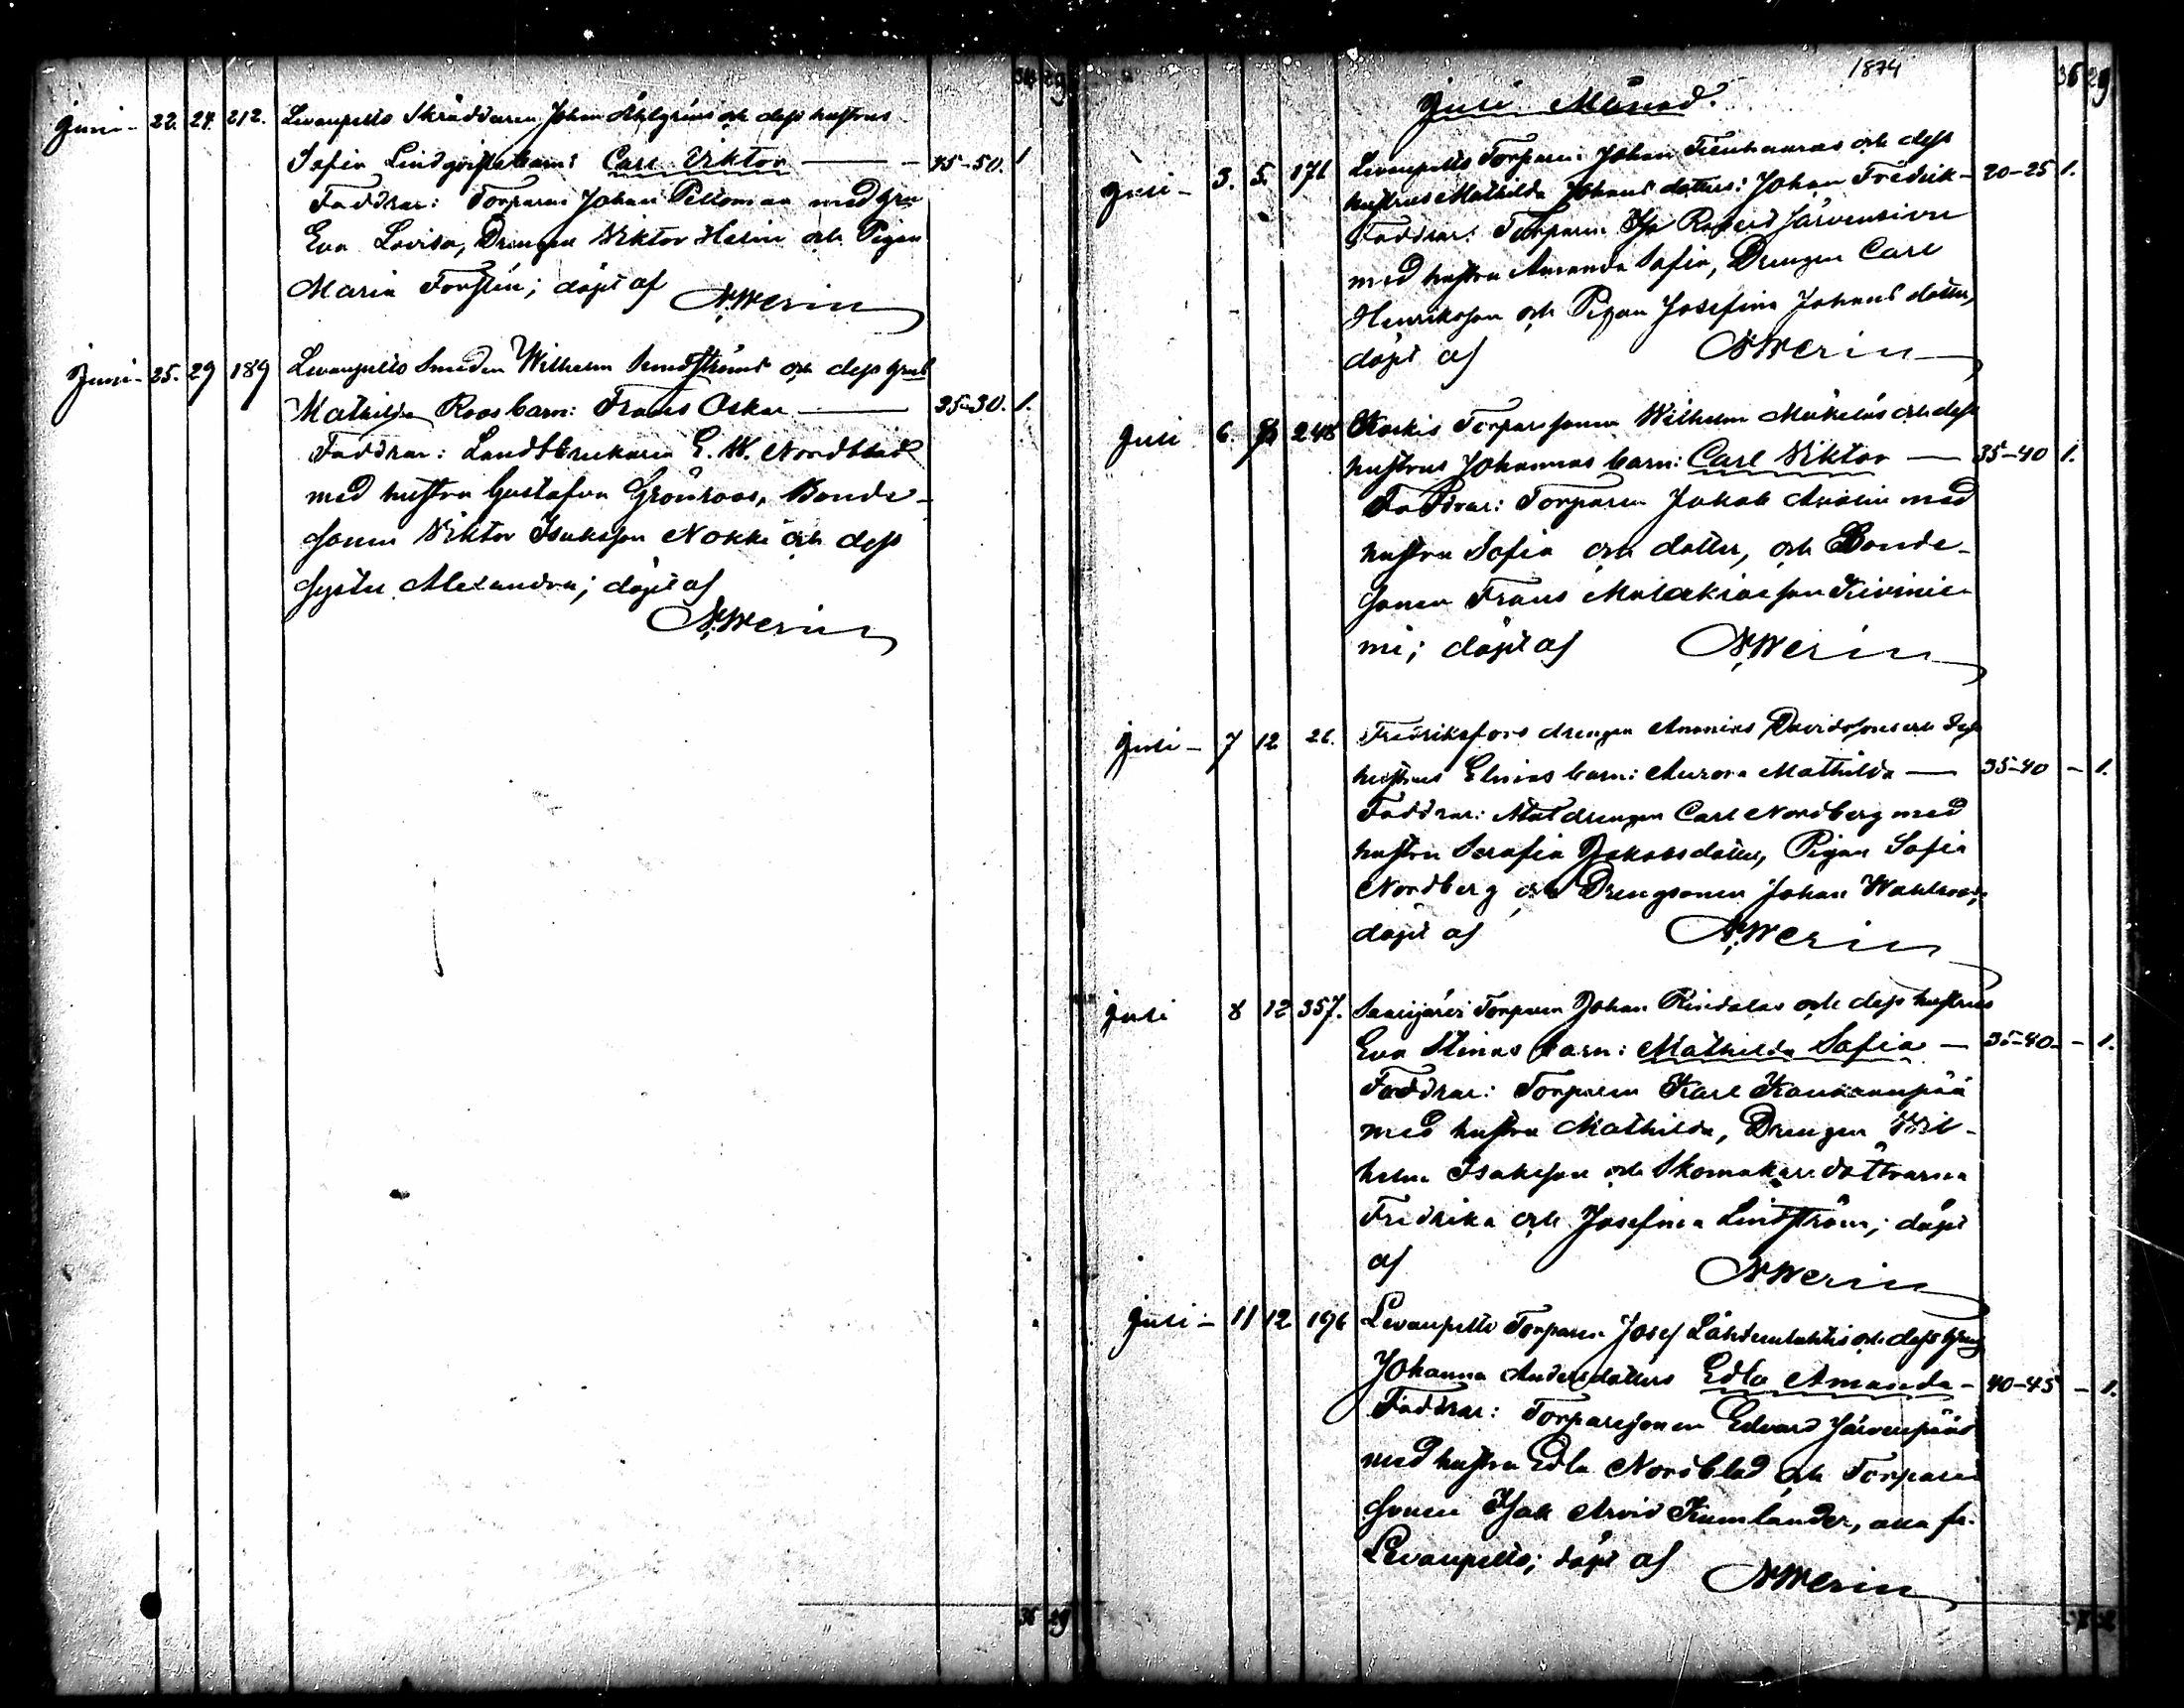 34 29
Juni - 22. 24. 212. Levanpelto Skräddaren Johan Ahlgréns och dess hustrus
Sofia Lindqvists barn: Carl Viktor — 45-50. 1
Faddrar: Torparen Johan Peltomaa med hru
Eva Lovisa, Drengen Viktor Helin och Pigan
Maria Forstén; döpt af NWerin
Juni - 25. 29 189 Levanpelto Smeden Wilhelm Sundströms och dess hrus
Mathilda Roos barn: Frans Oskar — 25-30. 1.
Faddrar: Landtbrukaren E. W. Nordblad
med hustru Gustafva Grönroos, Bonde-
sonen Viktor Isaksson Nokki och dess
syster Alexandra; döpt af
N.Werin
36 29
1874
36 29
Juli Månad.
Juli - 3. 5. 171 Levanpelto Torparen Johan
hustrus Mathilda Johansdotters: Johan Fredrik - 20-25 1.
Faddrar: Torparen Robert Järvensivu
med hustru Amanda Sofia, Drengen Carl
Henriksson och Pigan Josefina Johansdotter,
döpt af NWerin
Juli 6. 248 Torparesonen Wilhelm Mäkeläs och dess
hustrus Johannas barn: Carl Viktor — 35-40 1.
Faddrar: Torparen Jakob med
hustru Sofia och dotter, och Bonde-
sonen Frans Malakiasson Kivinie-
mi; döpt af N.Werin
Juli - 7 12 26. Fredriksfors drengen Ananias Davidssons och dess
hustrus Elinas barn: Aurora Mathilda — 35-40 - 1.
Faddrar: Muldrengen Carl Nordberg med
hustru Serafia Jakobsdotter, Pigan Sofia
Nordberg och Drengsonen Johan Wahlroos;
döpt af N.Werin
Juli 8 12 357. Saarijärvi Torparen Johan Rindalas och dess hustrus
Eva Stinas barn: Mathilda Sofia — 35-40 - 1.
Faddrar: Torparen Karl Kankaanpää
med hustru Mathilda, Drengen Wil-
helm Isaksson och Skomakaredöttrarna
Fredrika och Josefina Lindström; döpt
af NWerin
Juli - 11 12 196 Levanpelto Torparen Josef Lähteenlahtis och dess hrus
Johanna Andersdotters Edla Amanda - 40-45 - 1.
Faddrar: Torparesonen Edvard Järvenpää
med hustru Edla Nordblad och Torpare
sonen Isak Arvid Kumlander, alla fr.
Levanpelto; döpt af NWerin